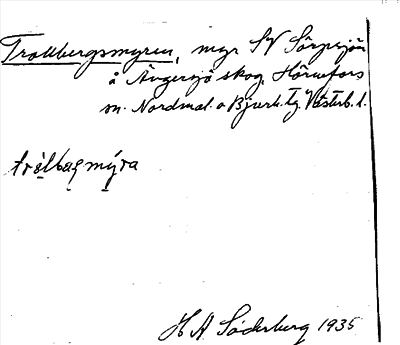 Trollbergsmyren, myr SV Sörsjön
å Ängersjö skog, Hörnefors
sn. Nordmal. o Bjurh. tg. Västerb. l.
tròlbaṣmýra
H A Söderberg 1935